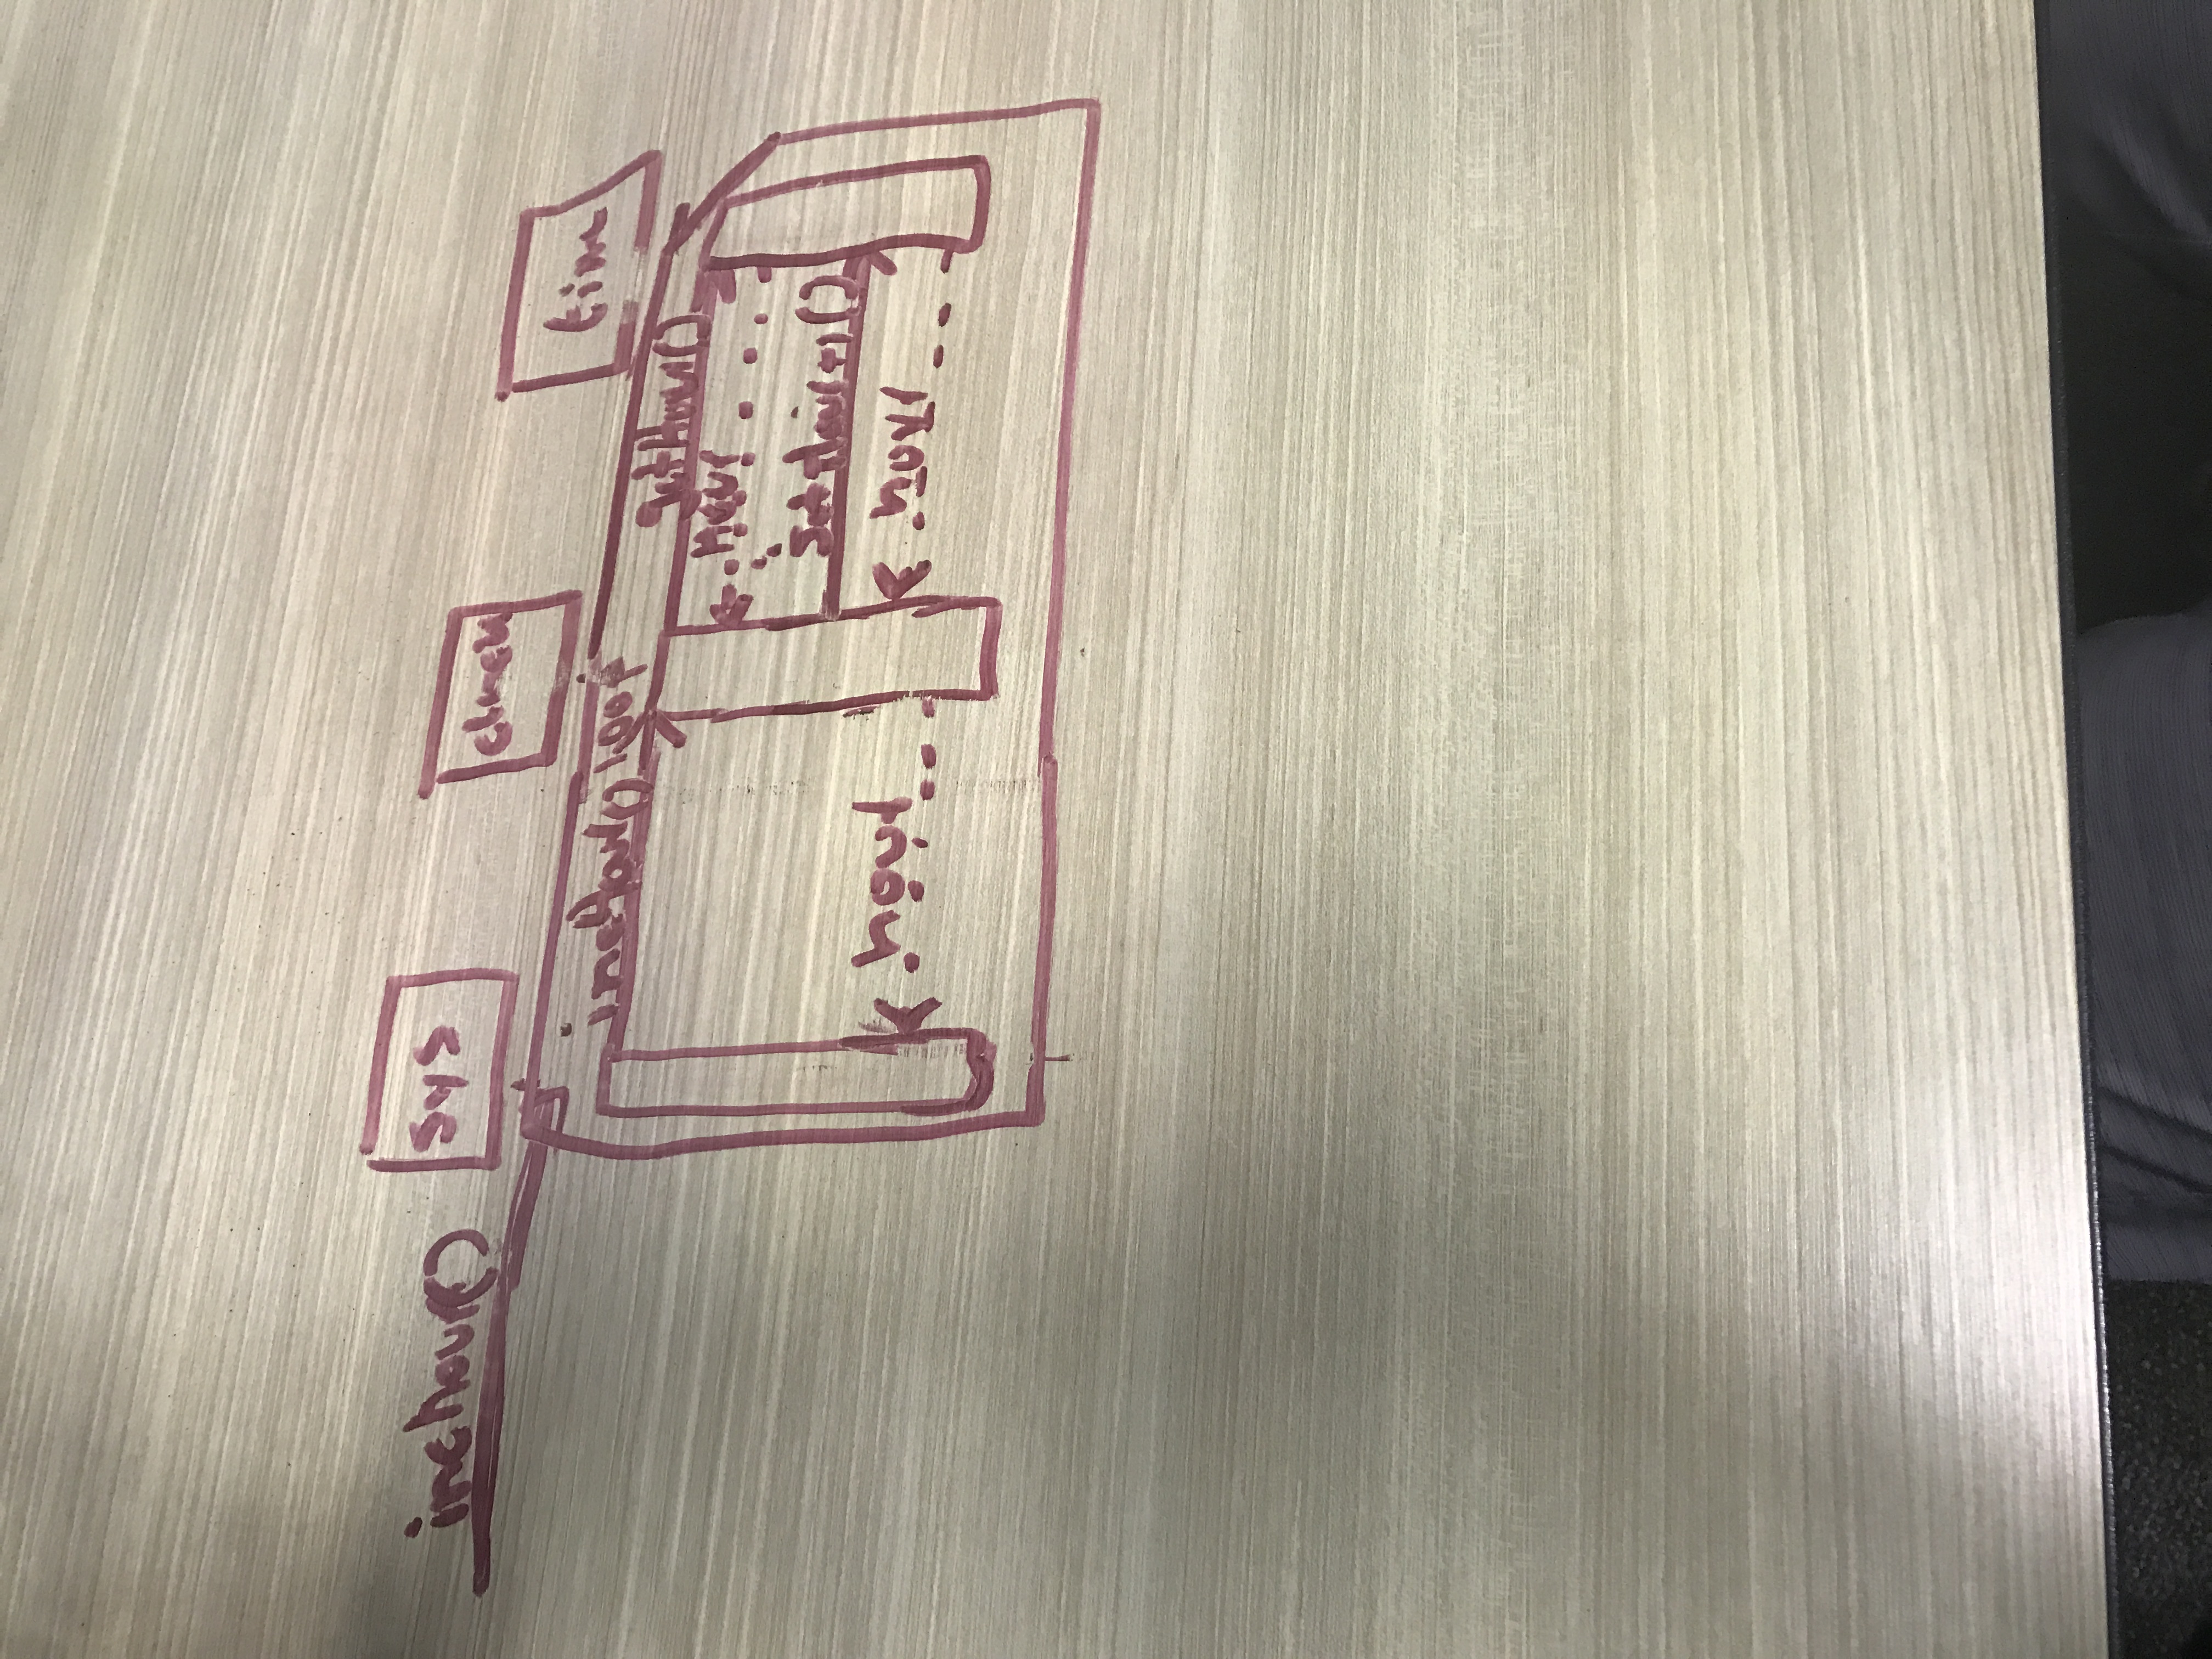 incHour()
sys
clock
time
incHour() loop
getHour()
hour
setHour+1()
hour
hour